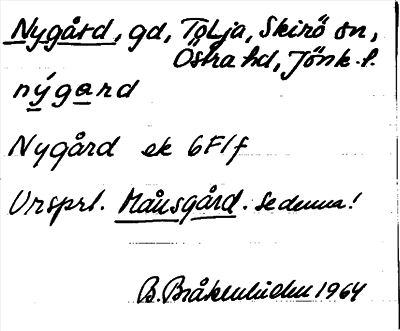 Nygård, gd, Tolja, Skirö sn,
Östra hd, Jönk. l.
nýgard
Nygård ek 6F/f
Ursprl. Månsgård. Se denna!
B. Bråkenhielm 1964